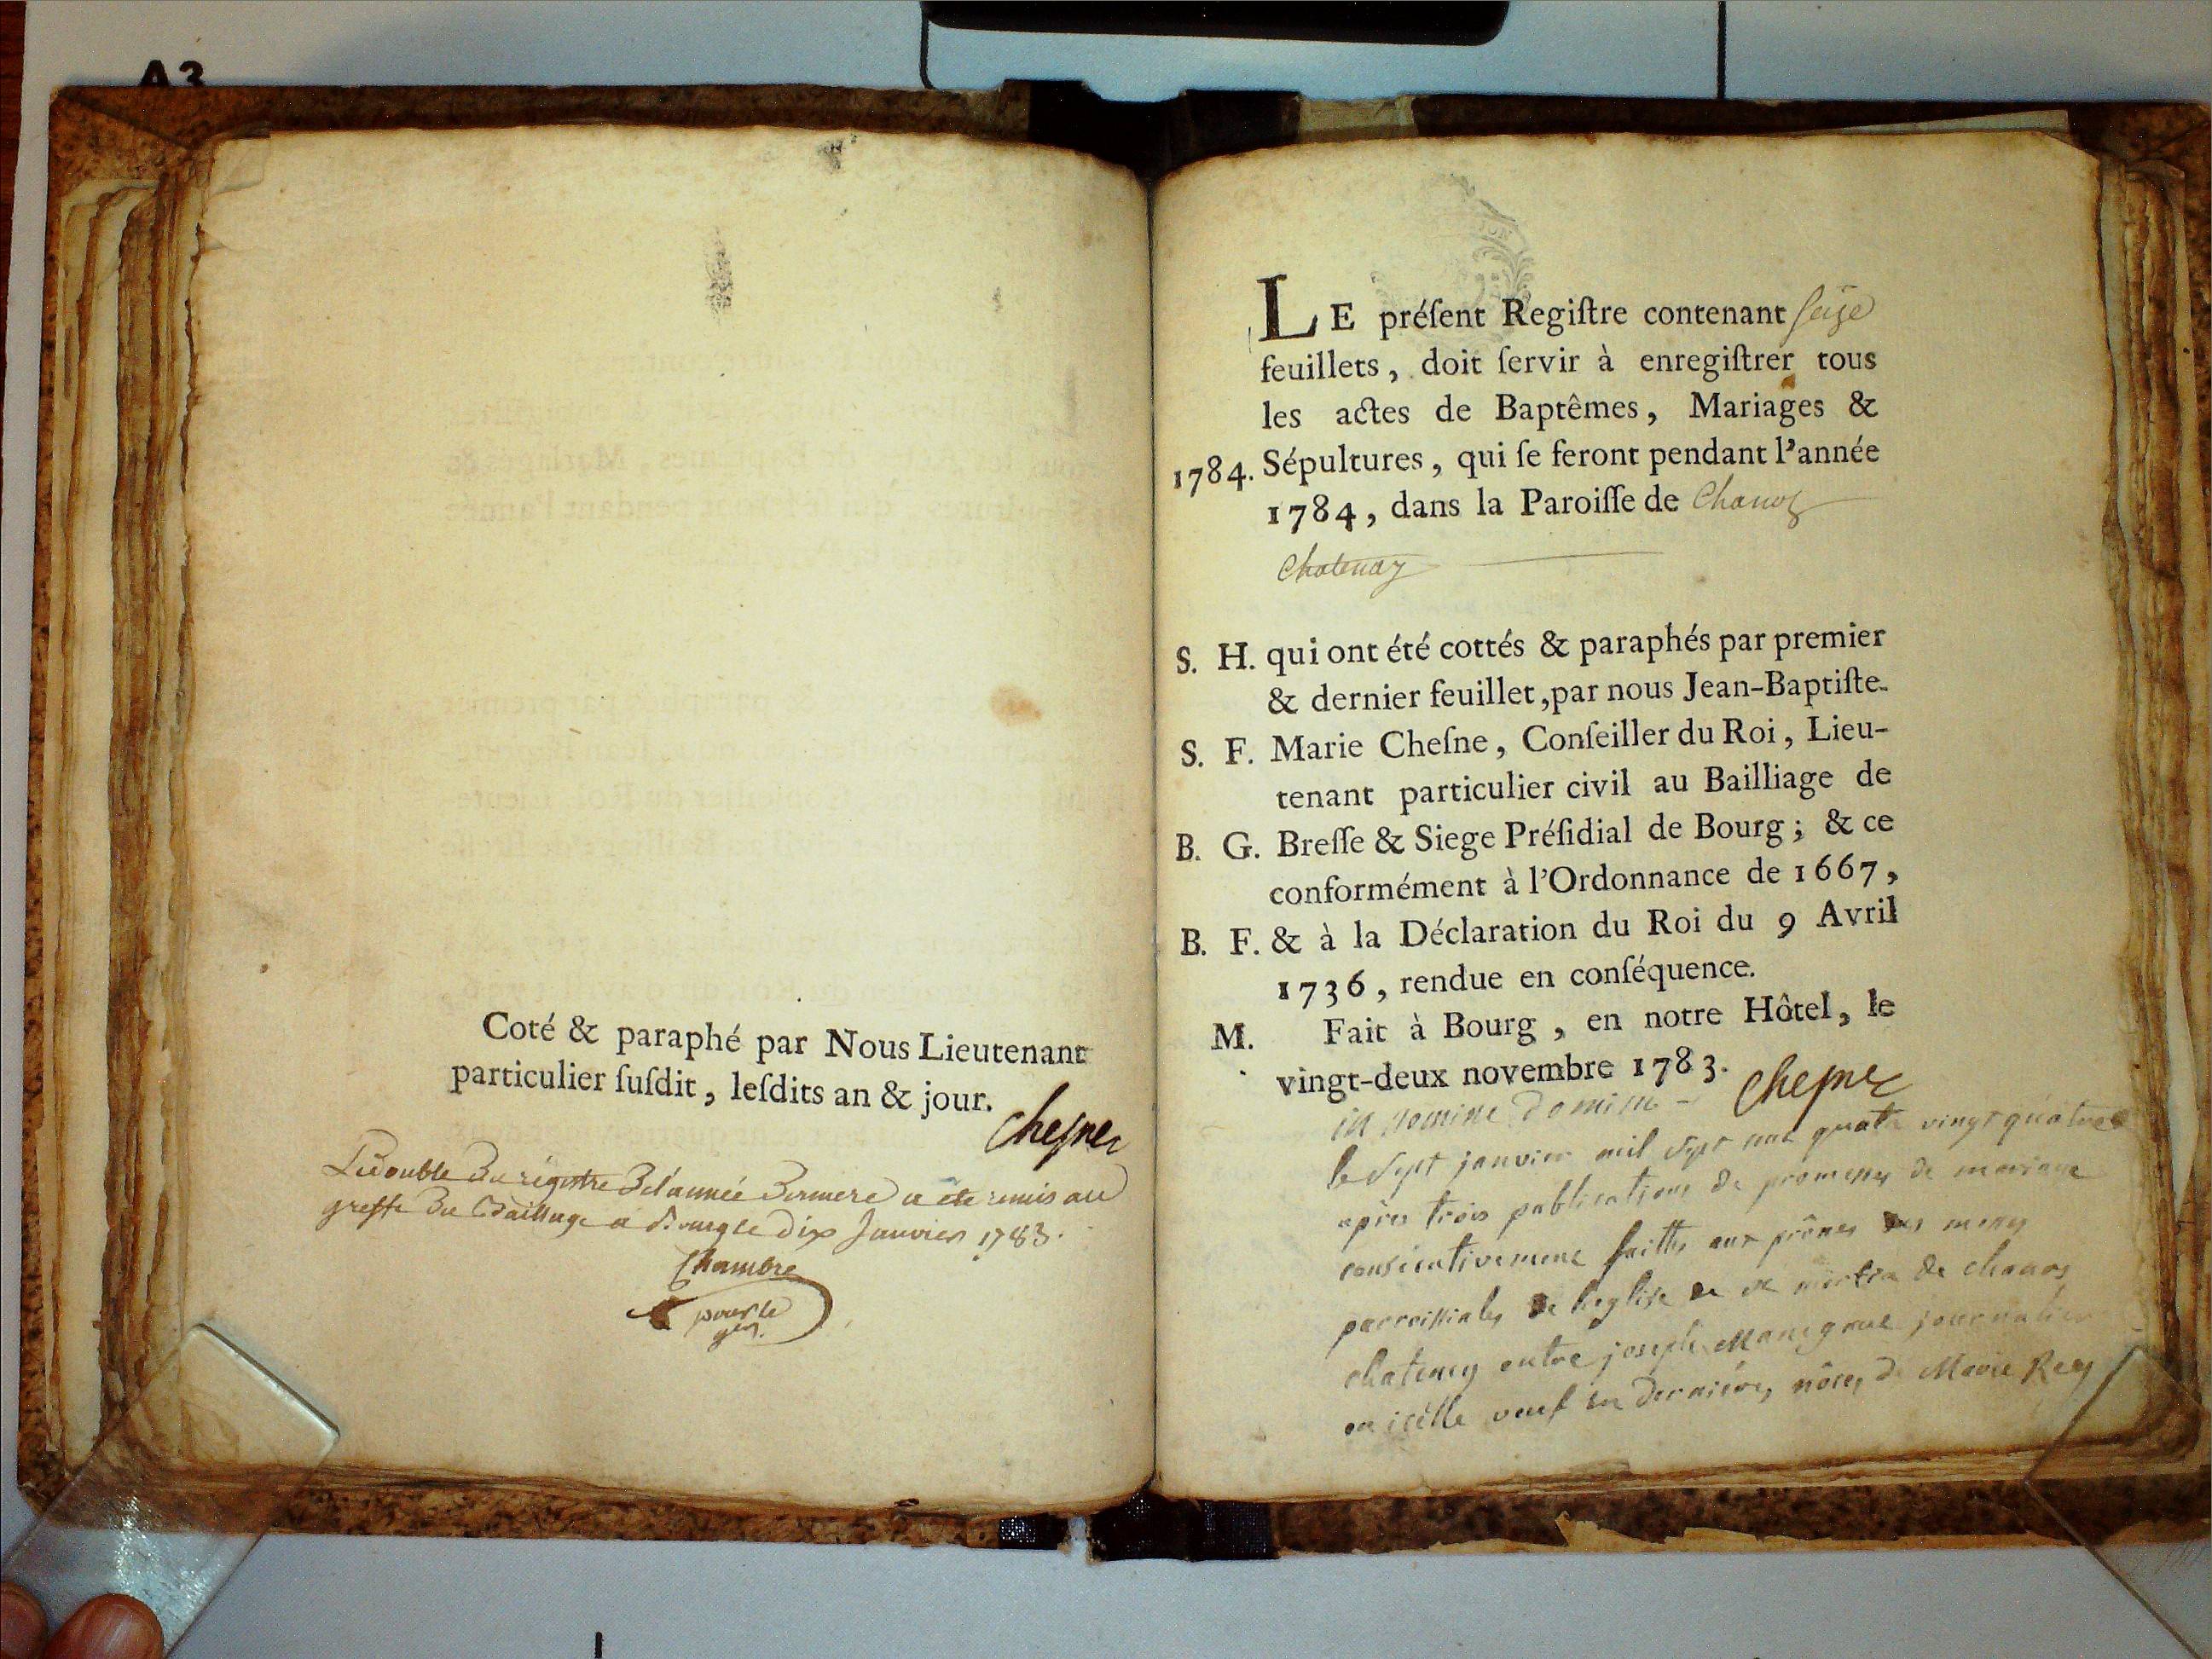 A3
Coté & paraphé par Nous Lieutenant
particulier ſuſdit, leſdits an & jour.
Cheſne
Le double du régistre de l'année derniere a été remis au
greffe du Bailliage a Bourg le dix Janvier 1783.
Chambre
pour le
LE préſent Regiſtre contenant ſeize
feuillets, doit ſervir à enregiſtrer tous
les actes de Baptêmes, Mariages &
1784. Sépultures, qui ſe feront pendant l'année
1784, dans la Paroiſſe de Chanoz
Chatenay
S. H. qui ont été cottés & paraphés par premier
& dernier feuillet, par nous Jean-Baptiſte-
S. F. Marie Cheſne, Conſeiller du Roi, Lieu-
tenant particulier civil au Bailliage de
B. G. Breſſe & Siege Préſidial de Bourg; & ce
conformément à l'Ordonnance de 1667,
B. F. & à la Déclaration du Roi du 9 Avril
1736, rendue en conſéquence.
M. Fait à Bourg, en notre Hôtel, le
vingt-deux novembre 1783. Cheſne
in nomine domini
le sept janvier mil sept cent quatre vingt quatre
après trois publications de promesses de mariage
consécutivement faittes aux prônes des messes
parroissiales de l'eglise de st martin de chanos
chatenay entre joseph journalier
en icelle veuf en dernières nôces de Marie Rey